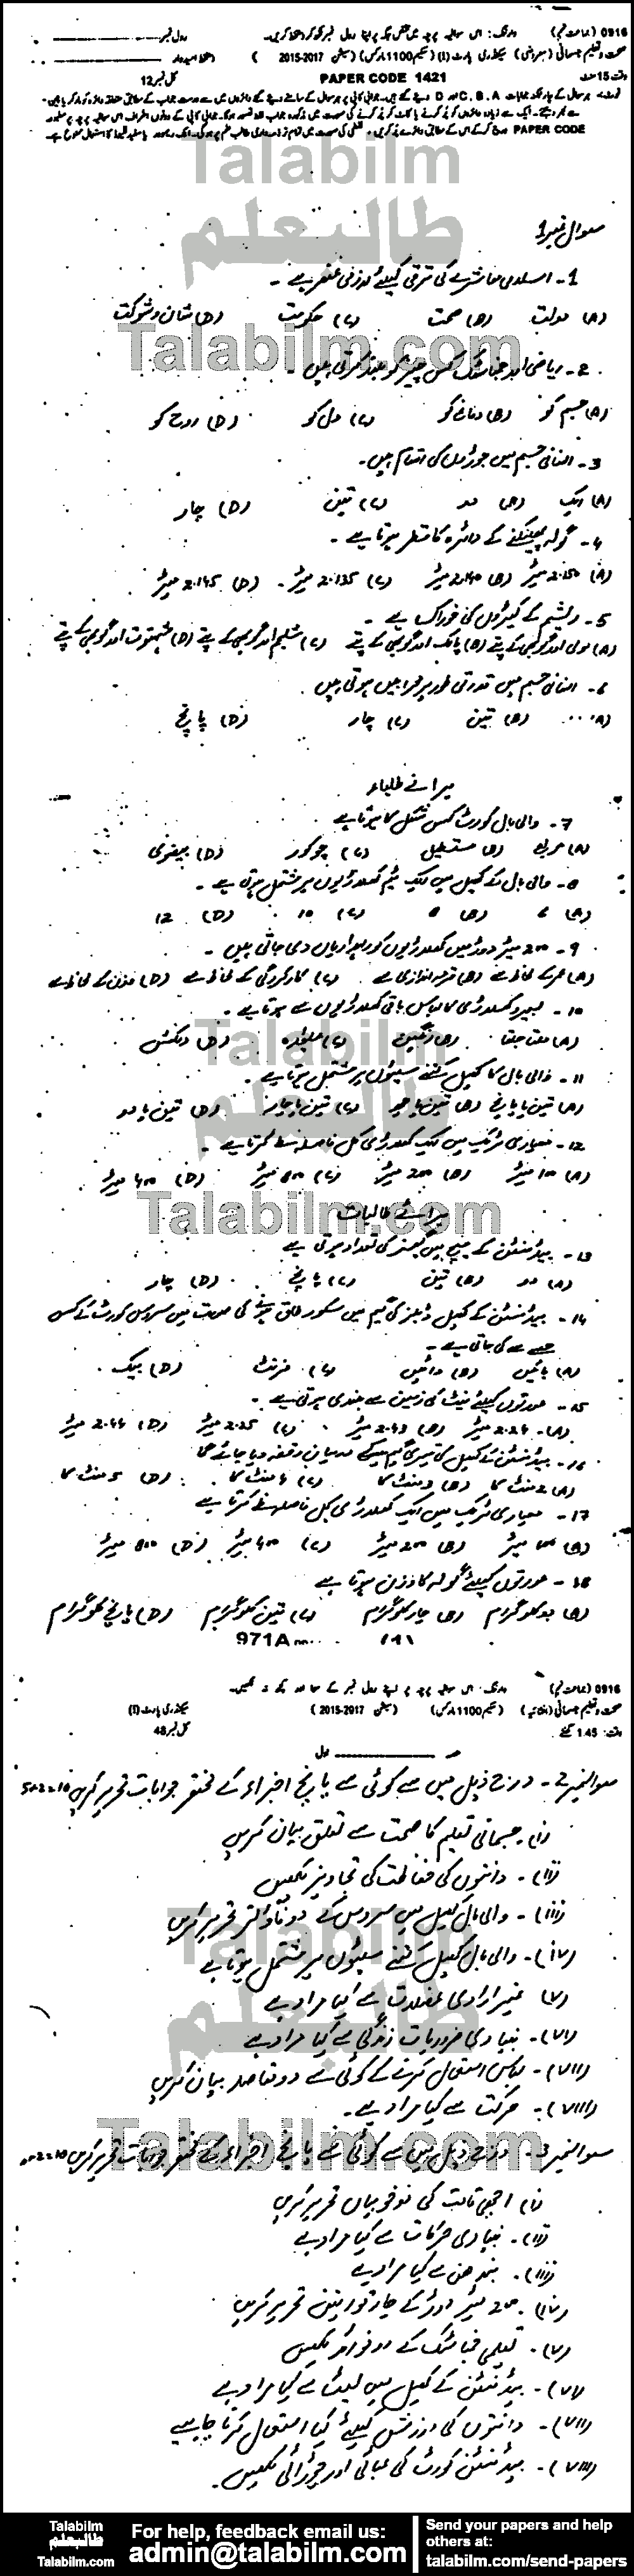 0916 (جماعت نہم)
رول نمبر
صحت و تعلیم جسمانی (معروضی) سیکنڈری پارٹ (I) (سکیم 1100 مارکس) (سیشن 2015-2017)
وقت 15 منٹ PAPER CODE 1421 کل نمبر 12
PAPER CODE
Talabilm
طالبعلم
سوال نمبر 1
1- اسلامی معاشرے کی ترقی کیلئے لازمی عنصر ہے -
(A) دولت (B) صحت (C) حکومت (D) شان و شوکت
Talabilm.com
2- ریاضی اور جمناسٹک کس چیز کو
(A) جسم کو (B) دماغ کو (C) دل کو (D) روح کو
3- انسانی جسم میں جوڑوں کی اقسام ہیں-
(A) ایک (B) دو (C) تین (D) چار
4- گولہ پھینکنے کے دائرہ کا قطر ہوتا ہے -
(A) 2.150 میٹر (B) 2.140 میٹر (C) 2.135 میٹر - (D) 2.145 میٹر
5- ریشم کے کیڑوں کی خوراک ہے -
(A) مولی اور گوبھی کے پتے (B) پالک اور گوبھی کے پتے (C) شلجم اور گوبھی کے پتے (D) شہتوت اور گوبھی کے پتے
6- انسانی جسم میں قدرتی طور پر
(A) .... (B) تین (C) چار (D) پانچ
برائے طلباء
7- والی بال کورٹ کس شکل کا ہوتا ہے
(A) مربع (B) مستطیل (C) چوکور (D) بیضوی
8- والی بال کے کھیل میں ایک ٹیم کھلاڑیوں پر مشتمل ہوتی ہے -
(A) 6 (B) 8 (C) 10 (D) 12
9- 200 میٹر دوڑ میں کھلاڑیوں کو راہداریاں دی جاتی ہیں -
(A) عمر کے لحاظ سے (B) قرعہ اندازی سے (C) کارکردگی کے لحاظ سے (D) وزن کے لحاظ سے
10- لبیرو کھلاڑی کا لباس باقی کھلاڑیوں سے ہوتا ہے -
(A) ملتا جلتا (B) رنگین (C) علیحدہ (D) دلکش
Talabilm
11- والی بال کا کھیل کتنے سیٹوں پر مشتمل ہوتا ہے -
(A) تین یا پانچ (B) تین یا چھ (C) تین یا چار (D) تین یا دو
12- معیاری ٹریک میں ایک کھلاڑی کل فاصلہ طے کرتا ہے -
(A) 100 میٹر (B) 200 میٹر (C) 800 میٹر (D) 400 میٹر
Talabilm.com
برائے طالبات
13- بیڈمنٹن کے میچ میں گیمز کی تعداد ہوتی ہے
(A) دو (B) تین (C) پانچ (D) چار
14- بیڈمنٹن کے کھیل ڈبلز کی گیم میں سکور طاق ہونے کی صورت میں سروس کورٹ کے کس
حصے سے کی جاتی ہے -
(A) بائیں (B) دائیں (C) فرنٹ (D) بیک
15- عورتوں کیلئے نیٹ کی زمین سے بلندی ہوتی ہے -
(A) 2.24 میٹر (B) 2.43 میٹر (C) 2.25 میٹر (D) 2.44 میٹر
16- بیڈمنٹن کے کھیل کی تیسری گیم کے درمیان وقفہ دیا جائے گا
(A) 2 منٹ کا (B) 3 منٹ کا (C) 4 منٹ کا (D) 5 منٹ کا
17- معیاری ٹریک میں ایک کھلاڑی کل فاصلہ طے کرتا ہے
(A) 100 میٹر (B) 200 میٹر (C) 400 میٹر (D) 800 میٹر
18- عورتوں کیلئے گولہ کا وزن ہوتا ہے
(A) دو کلوگرام (B) چار کلوگرام (C) تین کلوگرام (D) پانچ کلوگرام
971A
0916 (جماعت نہم)
صحت و تعلیم جسمانی (انشائیہ) (سکیم 1100 مارکس) (سیشن 2015-2017) سیکنڈری پارٹ (I)
وقت: 1.45 گھنٹے کل نمبر 48
سوال نمبر 2- درج ذیل میں سے کوئی سے پانچ اجزاء کے مختصر جوابات تحریر کریں 5x2=10
(i)- جسمانی تعلیم کا صحت سے تعلق بیان کریں
(ii)- دانتوں کی حفاظت کی تجاویز لکھیں
Talabilm
طالبعلم
(iii)- والی بال کھیل میں سروس کے دو فاؤلز تحریر کریں
(iv)- والی بال کھیل کتنے سیٹوں پر مشتمل ہوتا ہے
(v)- غیر ارادی عضلات سے کیا مراد ہے
(vi)- بنیادی ضروریات زندگی سے کیا مراد ہے
(vii)- لباس استعمال کرنے کے کوئی سے دو مقاصد بیان کریں
(viii)- حرکت سے کیا مراد ہے -
Talabilm.com
سوال نمبر 3- درج ذیل میں سے کوئی سے پانچ اجزاء کے مختصر جوابات تحریر کریں 5x2=10
(i) اچھی قامت کی دو خوبیاں تحریر کریں
(ii)- بنیادی حرکات سے کیا مراد ہے
(iii)- بندھن سے کیا مراد ہے
(iv)- 200 میٹر دوڑ کے چار قوانین تحریر کریں
(v)- تعلیمی جمناسٹک کے دو فوائد لکھیں
(vi)- بیڈمنٹن کے کھیل میں لیٹ سے کیا مراد ہے
(vii)- دانتوں کی ورزش کیلئے کیا استعمال کرنا چاہیے
(viii)- بیڈمنٹن کورٹ کی لمبائی اور چوڑائی لکھیں -
Talabilm
طالبعلم
Talabilm.com
For help, feedback email us:
admin@talabilm.com
Send your papers and help
others at:
talabilm.com/send-papers